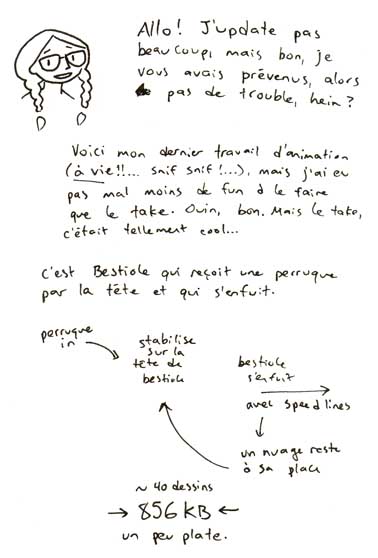 Allo! J'update pas
beaucoup, mais bon, je
vous avais prévenus, alors
pas de trouble, hein?
Voici mon dernier travail d'animation
(à vie!!... snif snif!...), mais j'ai eu
pas mal moins de fun à le faire
que le take. Ouin, bon. Mais le take,
c'était tellement cool...
C'est Bestiole qui reçoit une perruque
par la tête et qui s'enfuit.
perruque
in
stabilise
sur la
tête de
bestiole
bestiole
s'enfuit
avec speed lines
un nuage reste
à sa place
~ 40 dessins
→ 856 KB ←
un peu plate.